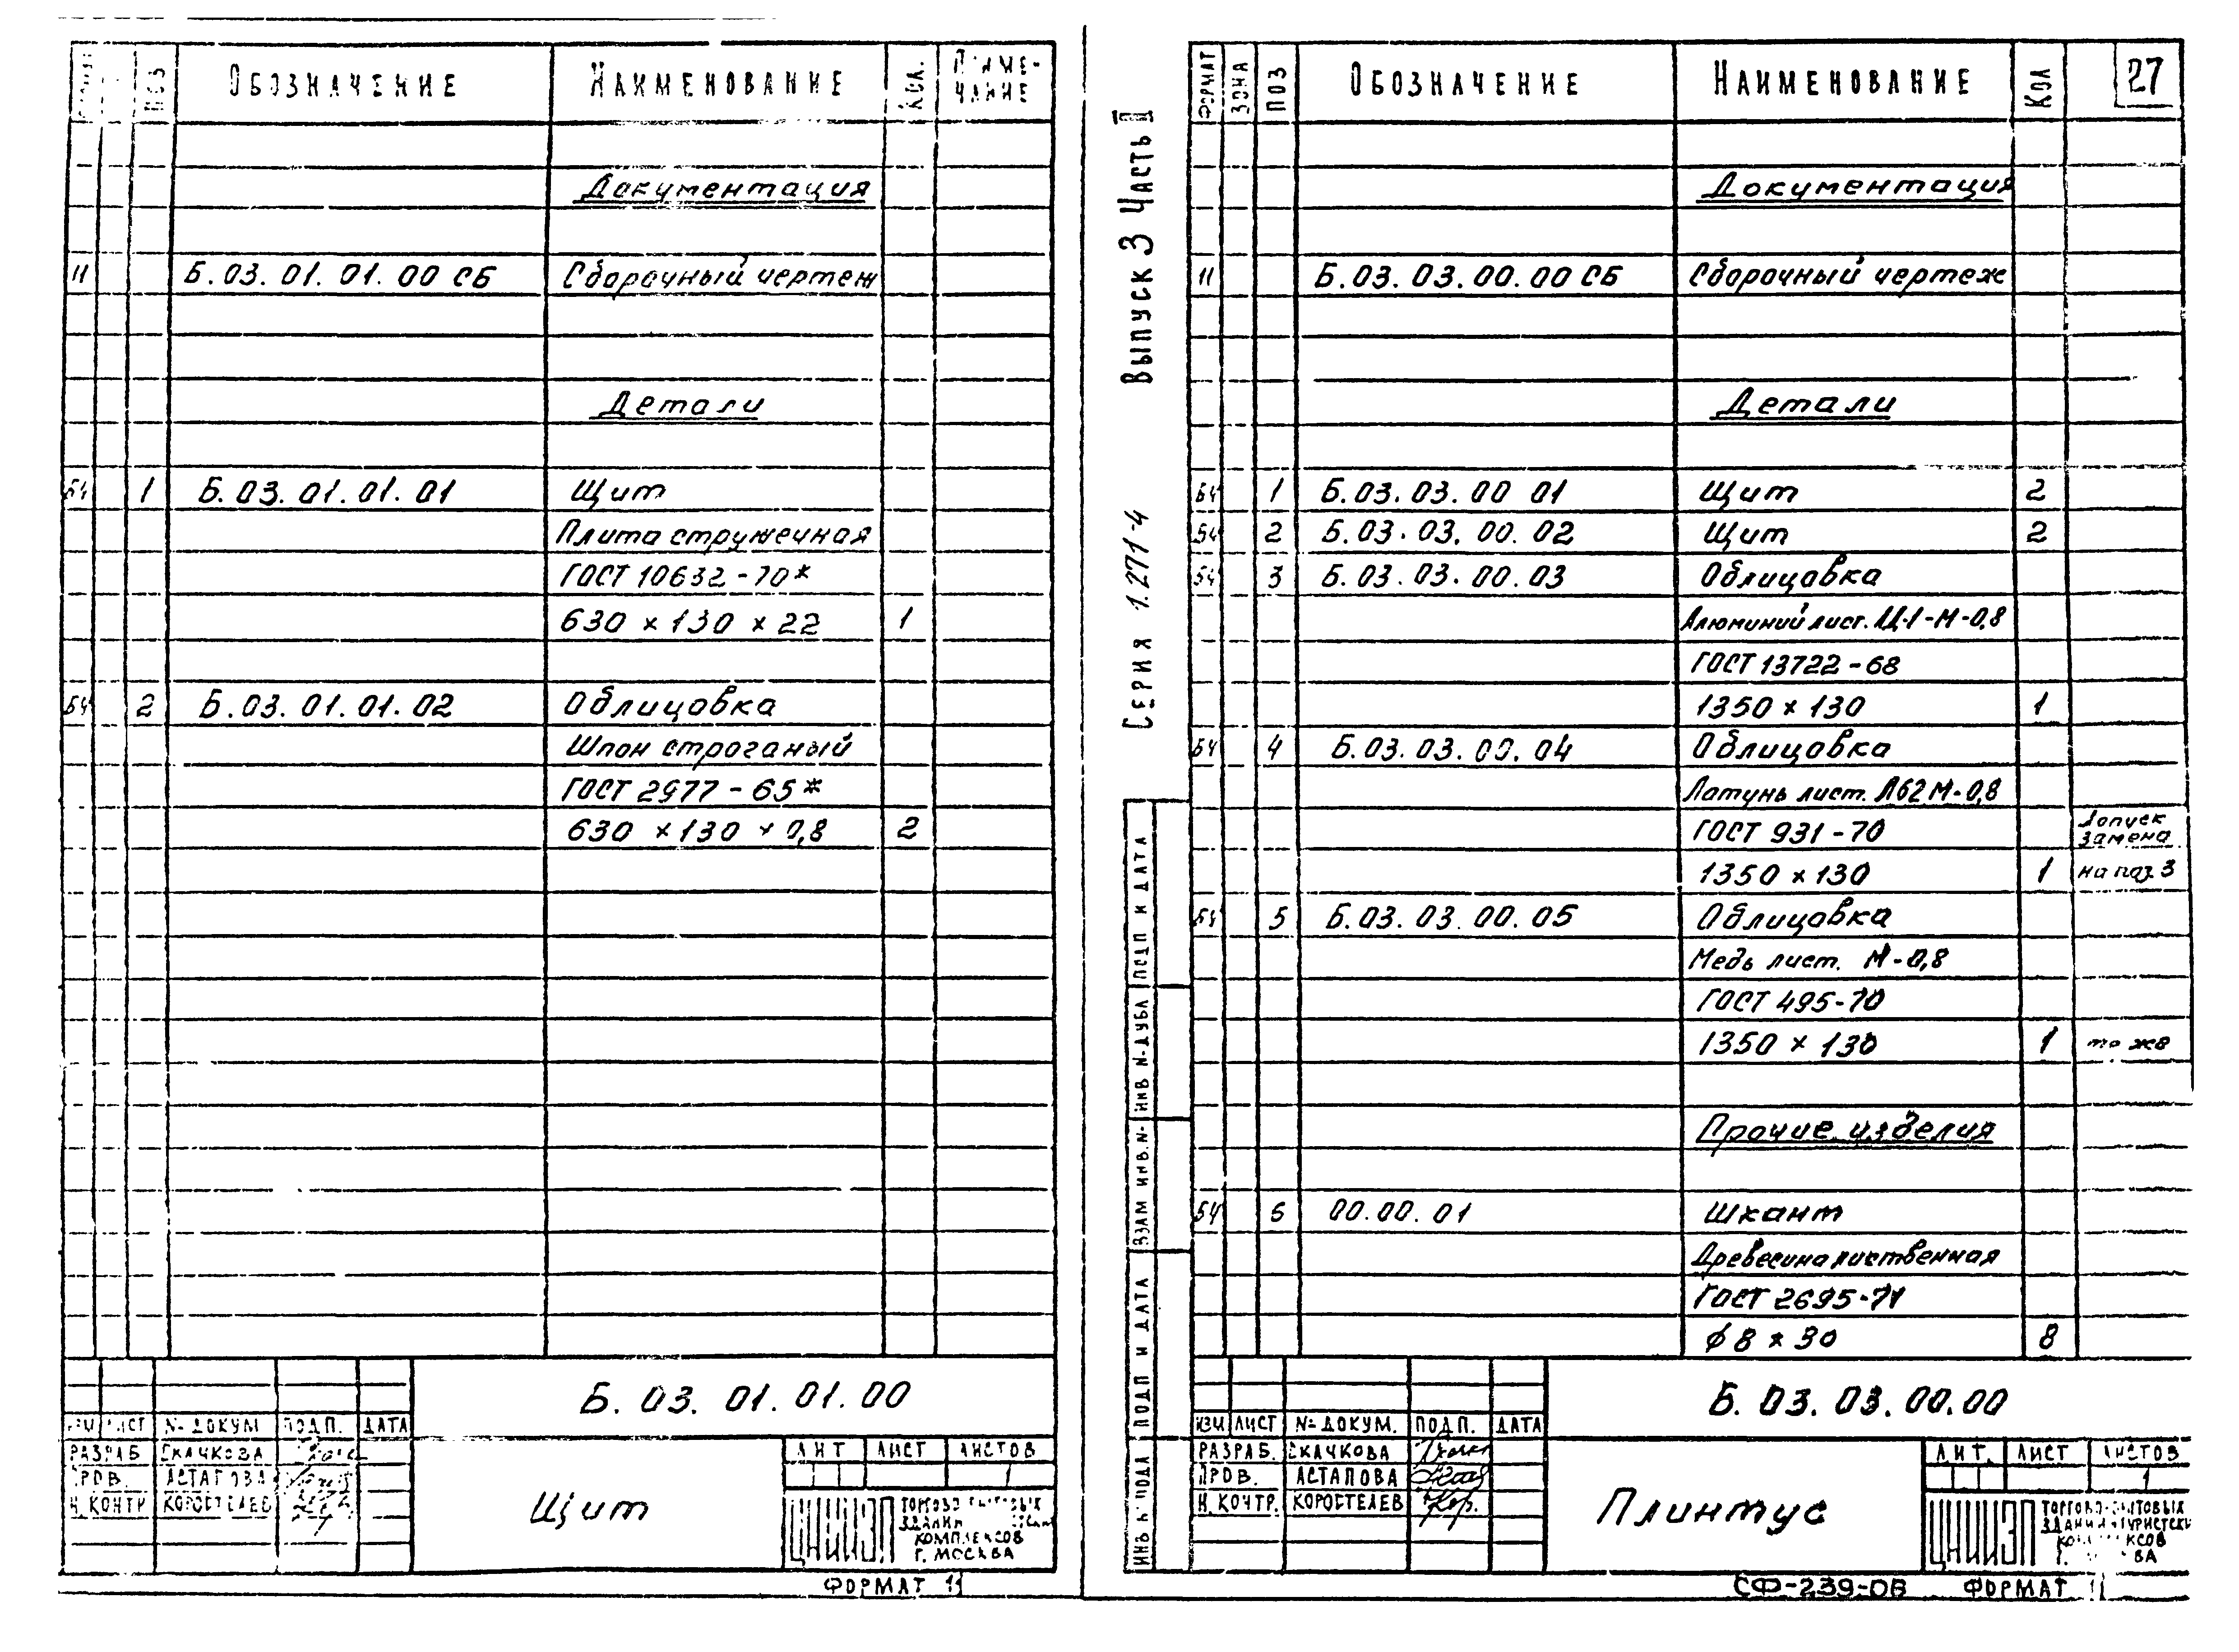 ПОЗ ОБОЗНАЧЕНИЕ НАИМЕНОВАНИЕ КОЛ. ПРИМЕ-
ЧАНИЕ
Документация
11 Б.03.01.01.00 СБ Сборочный чертеж
Детали
Б4 1 Б.03.01.01.01 Щит
Плита стружечная
ГОСТ 10632-70*
630 × 130 × 22 1
Б4 2 Б.03.01.01.02 Облицовка
Шпон строганый
ГОСТ 2977-65*
630 × 130 × 0,8 2
Б.03.01.01.00
ИЗМ ЛИСТ № ДОКУМ. ПОДП. ДАТА
РАЗРАБ. СКАЧКОВА
ПРОВ. АСТАПОВА
Н.КОНТР. КОРОСТЕЛЕВ
Щит
ЛИТ ЛИСТ ЛИСТОВ
1
ЦНИИЭП
ТОРГОВО-БЫТОВЫХ
ЗДАНИЙ
КОМПЛЕКСОВ
Г. МОСКВА
ФОРМАТ 11
ВЫПУСК 3 ЧАСТЬ II
СЕРИЯ 1.271-4
ПОДП И ДАТА
ИНВ №ДУБЛ
ВЗАМ ИНВ.№
ПОДП И ДАТА
ИНВ № ПОДЛ
ФОРМАТ ЗОНА ПОЗ ОБОЗНАЧЕНИЕ НАИМЕНОВАНИЕ КОЛ 27
Документация
11 Б.03.03.00.00 СБ Сборочный чертеж
Детали
Б4 1 Б.03.03.00 01 Щит 2
Б4 2 Б.03.03.00.02 Щит 2
Б4 3 Б.03.03.00.03 Облицовка
Алюминий лист. АД-1-М-0,8
ГОСТ 13722-68
1350 × 130 1
Б4 4 Б.03.03.00.04 Облицовка
Латунь лист. Л62 М-0,8
ГОСТ 931-70 Допуск
замена
1350 × 130 1 на поз 3
Б4 5 Б.03.03.00.05 Облицовка
Медь лист. М-0,8
ГОСТ 495-70
1350 × 130 1 то же
Прочие изделия
Б4 6 00.00.01 Шкант
Древесина лиственная
ГОСТ 2695-71
ϕ 8 × 30 8
Б.03.03.00.00
ИЗМ ЛИСТ № ДОКУМ. ПОДП. ДАТА
РАЗРАБ. СКАЧКОВА
ПРОВ. АСТАПОВА
Н.КОНТР. КОРОСТЕЛЕВ
Плинтус
ЛИТ. ЛИСТ ЛИСТОВ
1
ЦНИИЭП
ТОРГОВО-БЫТОВЫХ
ЗДАНИЙ
Г.
СФ-239-08 ФОРМАТ 11